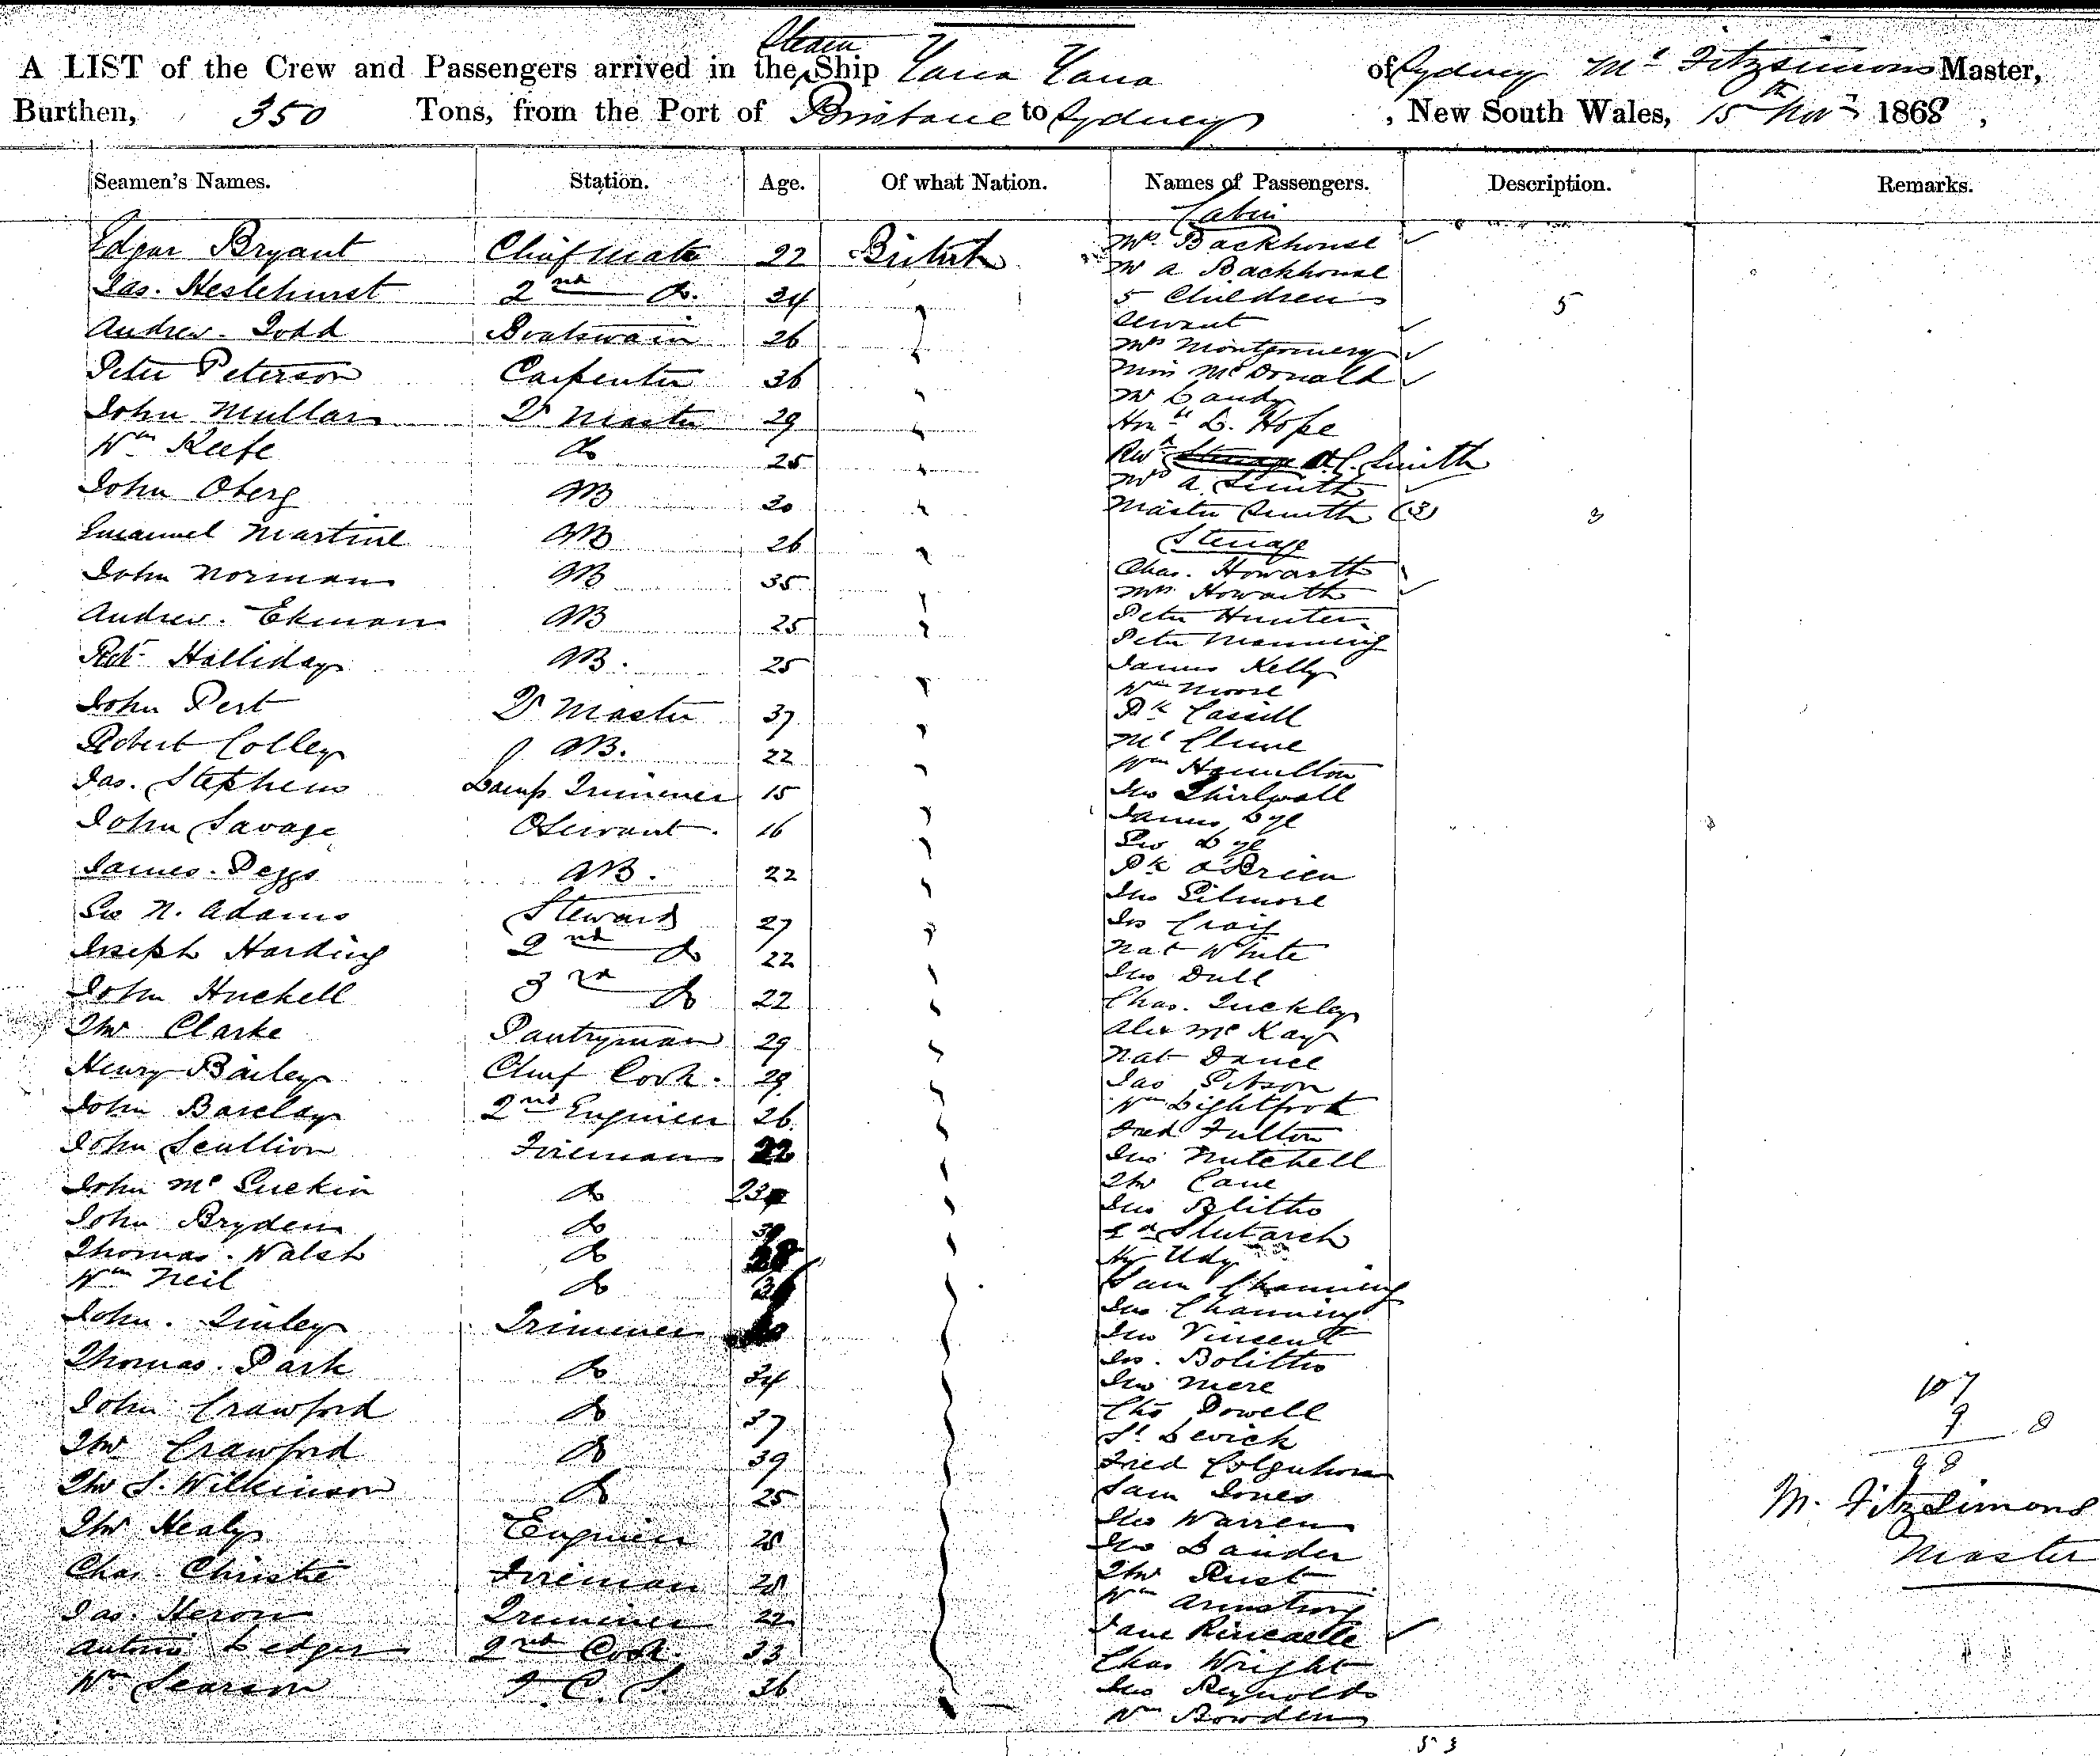 A LIST of the Crew and Passengers arrived in the Steam Ship Yarra Yarra of Sydney Mc Fitzsimons Master,
Burthen, 350 Tons, from the Port of Brisbane to Sydney, New South Wales, 15th Novr 1868,
Seamen's Names. Station. Age. Of what Nation. Names of Passengers. Description. Remarks.
Cabin
Edgar Bryant Chief Mate 22 British Mr Backhouse
Mr A Backhouse
Jas. Heslehurst 2nd Do. 34 5 Children 5
Servant
Andrew Todd Boatswain 26 Mrs Montgomery
Peter Peterson Carpenter 36 Miss McDonald
Mr Candy
John Mullar Qr Master 29 Honble L. Hope
Wm Keefe Do 25 Revd C. Smith
Mrs A Smith
John Oberg AB 30 Master Smith (3) 3
Emanuel Martine AB 26 Steerage
John Norman AB 35 Chas. Howarth
Mrs Howarth
Andrew Ekman AB 25 Peter Hunter
Peter Manning
Robt Halliday AB. 25 James Kelly
Wm Moore
John Pert Qr Master 37 Pk Cassill
Robert Colley AB. 22 Mc Clune
Wm Hamilton
Jas. Stephens Lamp Trimmer 15 Jno Thirlwall
John Savage O Servant 16 James Lye
Geo Lye
James Peggs AB. 22 Pk O'Brien
Jno Gilmore
Geo N. Adams Steward 27 Jos Craig
Joseph Harding 2nd Do 22 Nat White
Jno Dull
John Huckell 3rd Do 22 Chas. Tuckley
Thos Clarke Pantryman 29 Alex McKay
Nat Dance
Henry Bailey Chief Cook 29 Jas Gibson
John Barclay 2nd Engineer 26 Wm Lightfoot
Fred Fulton
John Scullion Fireman 22 Jno Mutchell
John McGuckin Do Thos Cane
Jno Blitho
John Bryden Do Slutarch
Thomas Walsh Do Hy Udy
Wm Neil Do Sam Channing
Jno Channing
John Tinley Trimmer Jno Vincent
Thomas Park Do 34 Jos. Bolitho
Jno Mere
John Crawford Do 37 Chs Powell 107
St Levick 9
Thos Crawford Do 39 Fred Colquhoun 98
Thos S. Wilkinson Do 25 Sam Jones M. FitzSimons
Thos Healy Engineer 28 Jno Warren
Jno Lander Master
Chas. Christie Fireman 28 Thos Rust
Wm Armstrong
Jas. Heron Trimmer 22 Jane Kincade
Antonio Ledger 2nd Cook 33 Chas Wright
Wm Searson F. C. S. 36 Jno Reynolds
Wm Bowden
53